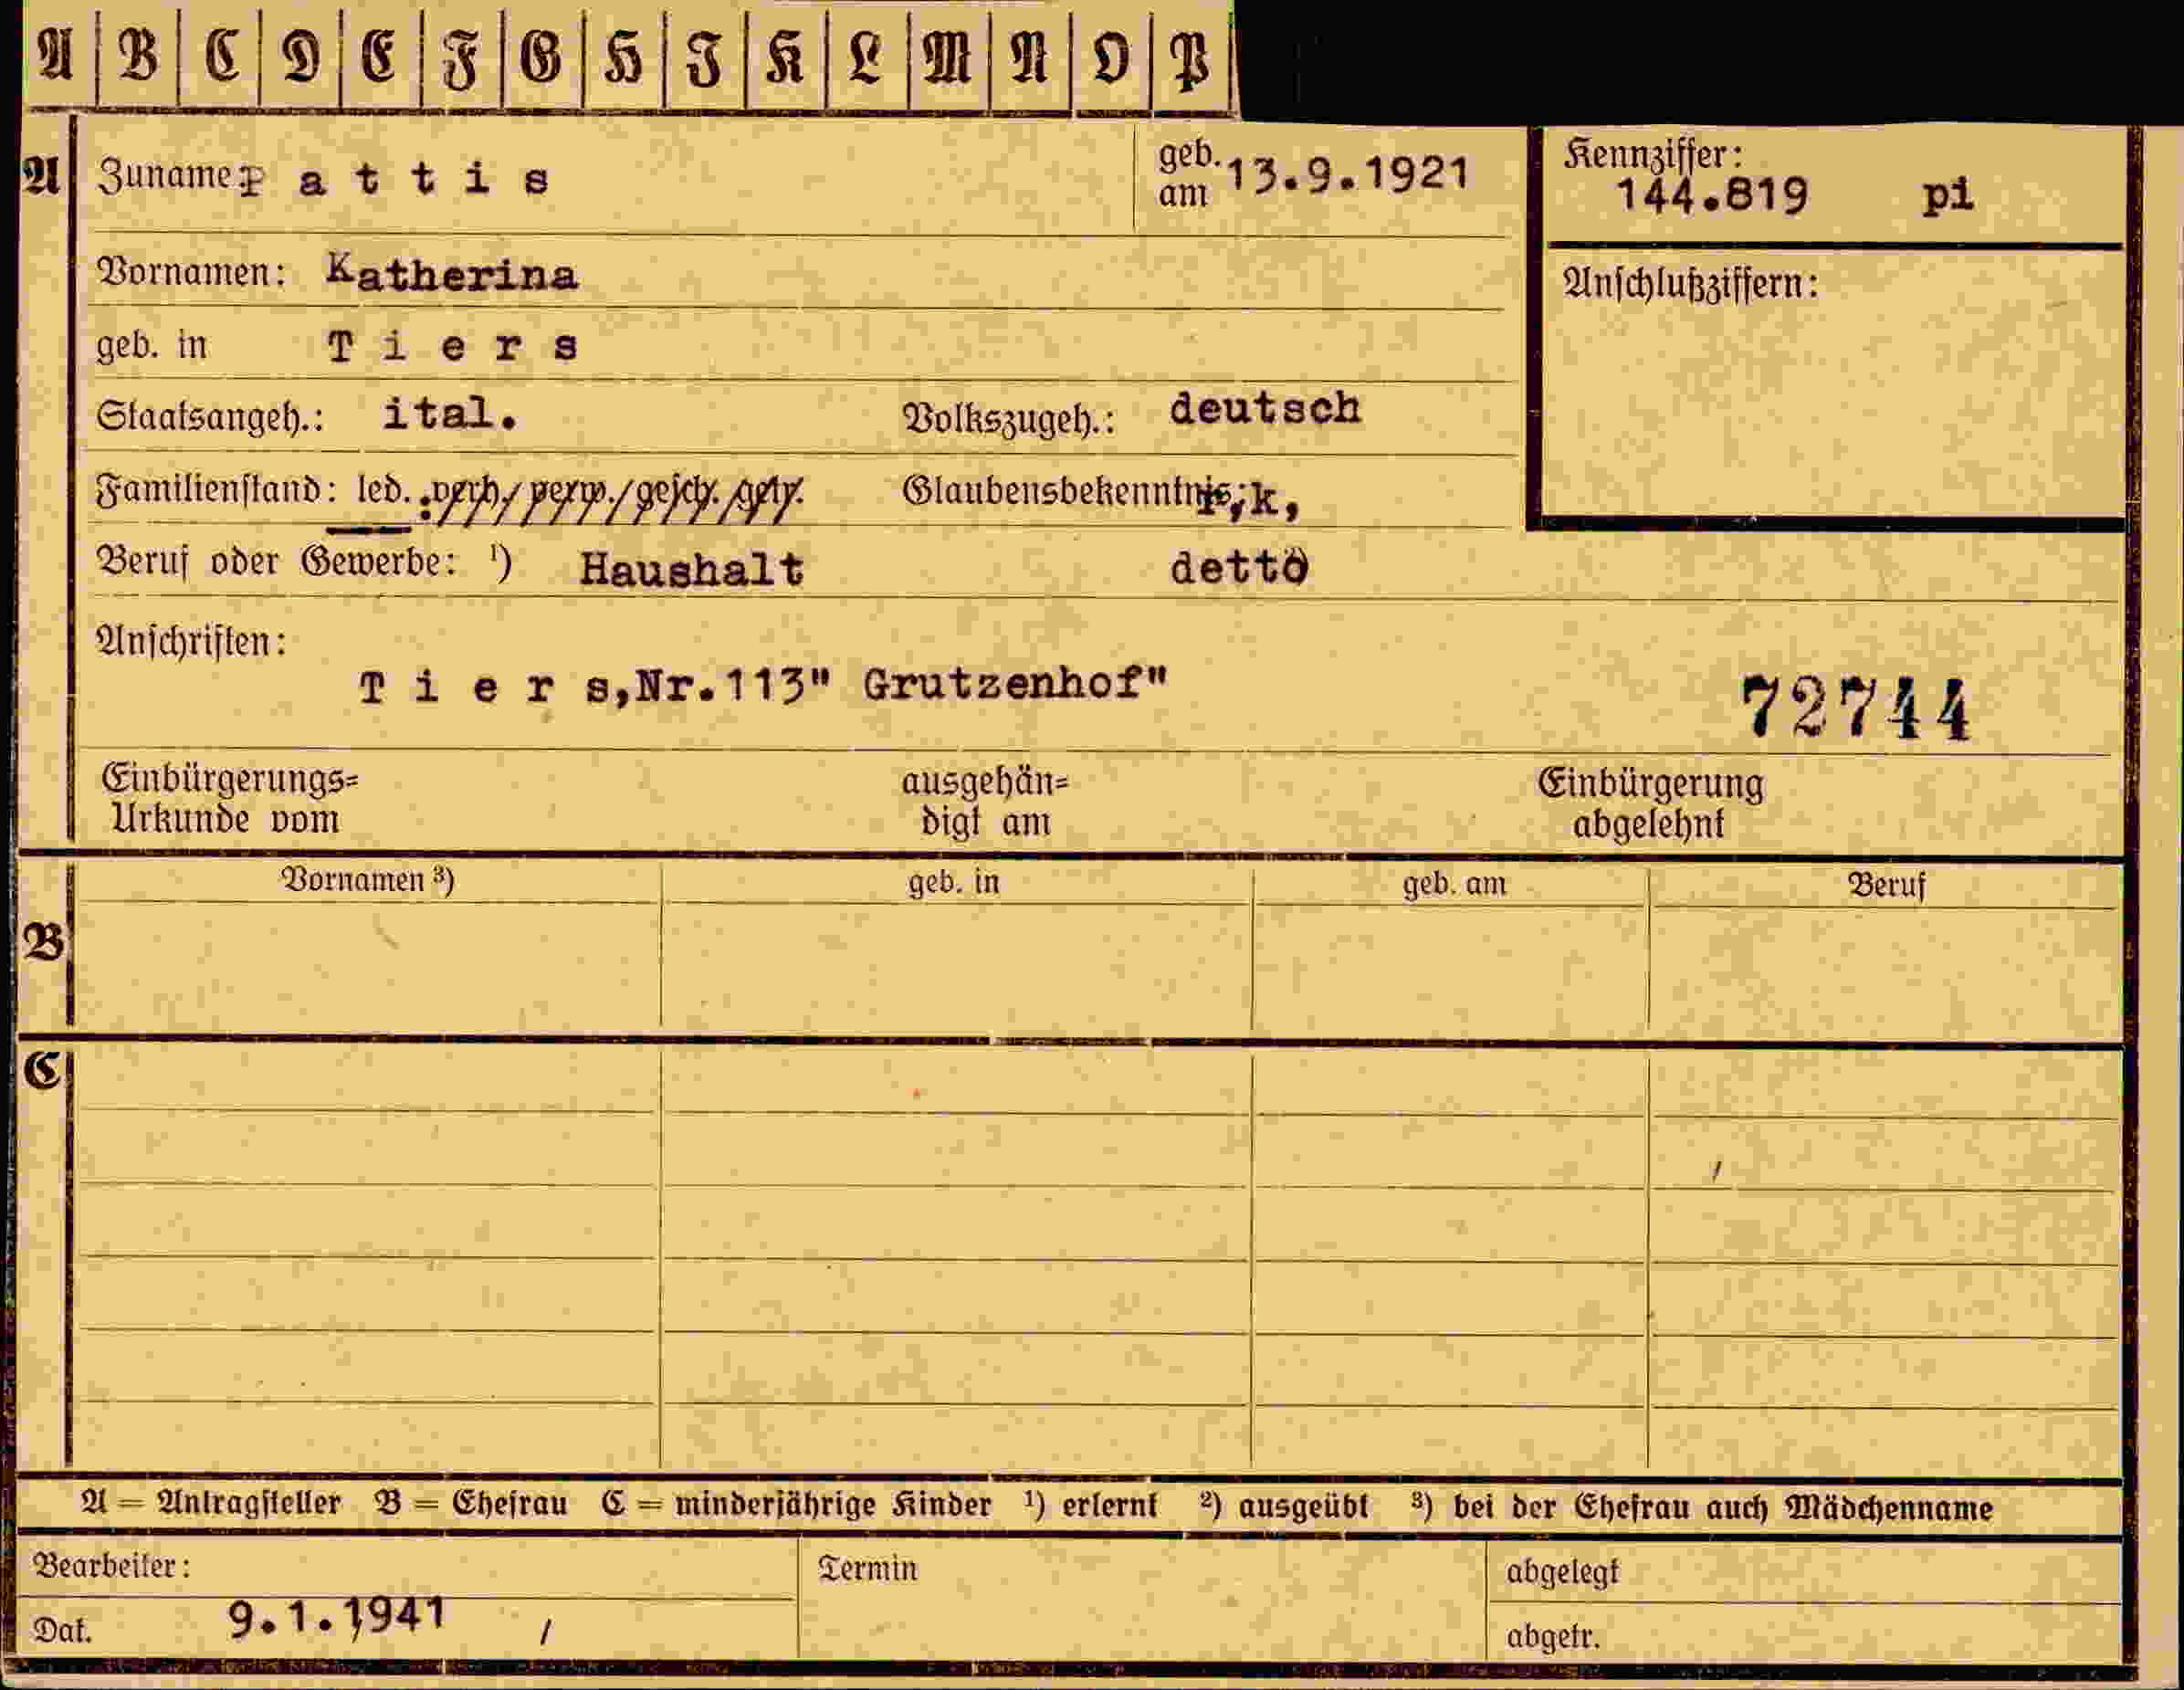 A B C D E F G H I K L M N O P
A Zuname: P a t t i s geb. am 13.9.1921 Kennziffer: 144.819 pi
Vornamen: Katherina Anschlußziffern:
geb. in T i e r s
Staatsangeh.: ital. Volkszugeh.: deutsch
Familienstand: led. verh./ verw./ gesch. getr. Glaubensbekenntnis: r,k,
Beruf oder Gewerbe: ¹) Haushalt detto
Anschriften:
T i e r s,Nr.113" Grutzenhof" 72744
Einbürgerungs= ausgehän= Einbürgerung
Urkunde vom digt am abgelehnt
Vornamen ³) geb. in geb. am Beruf
B
C
A = Antragsteller B = Ehefrau C = minderjährige Kinder ¹) erlernt ²) ausgeübt ³) bei der Ehefrau auch Mädchenname
Bearbeiter: Termin abgelegt
Dat. 9.1.1941 / abgetr.